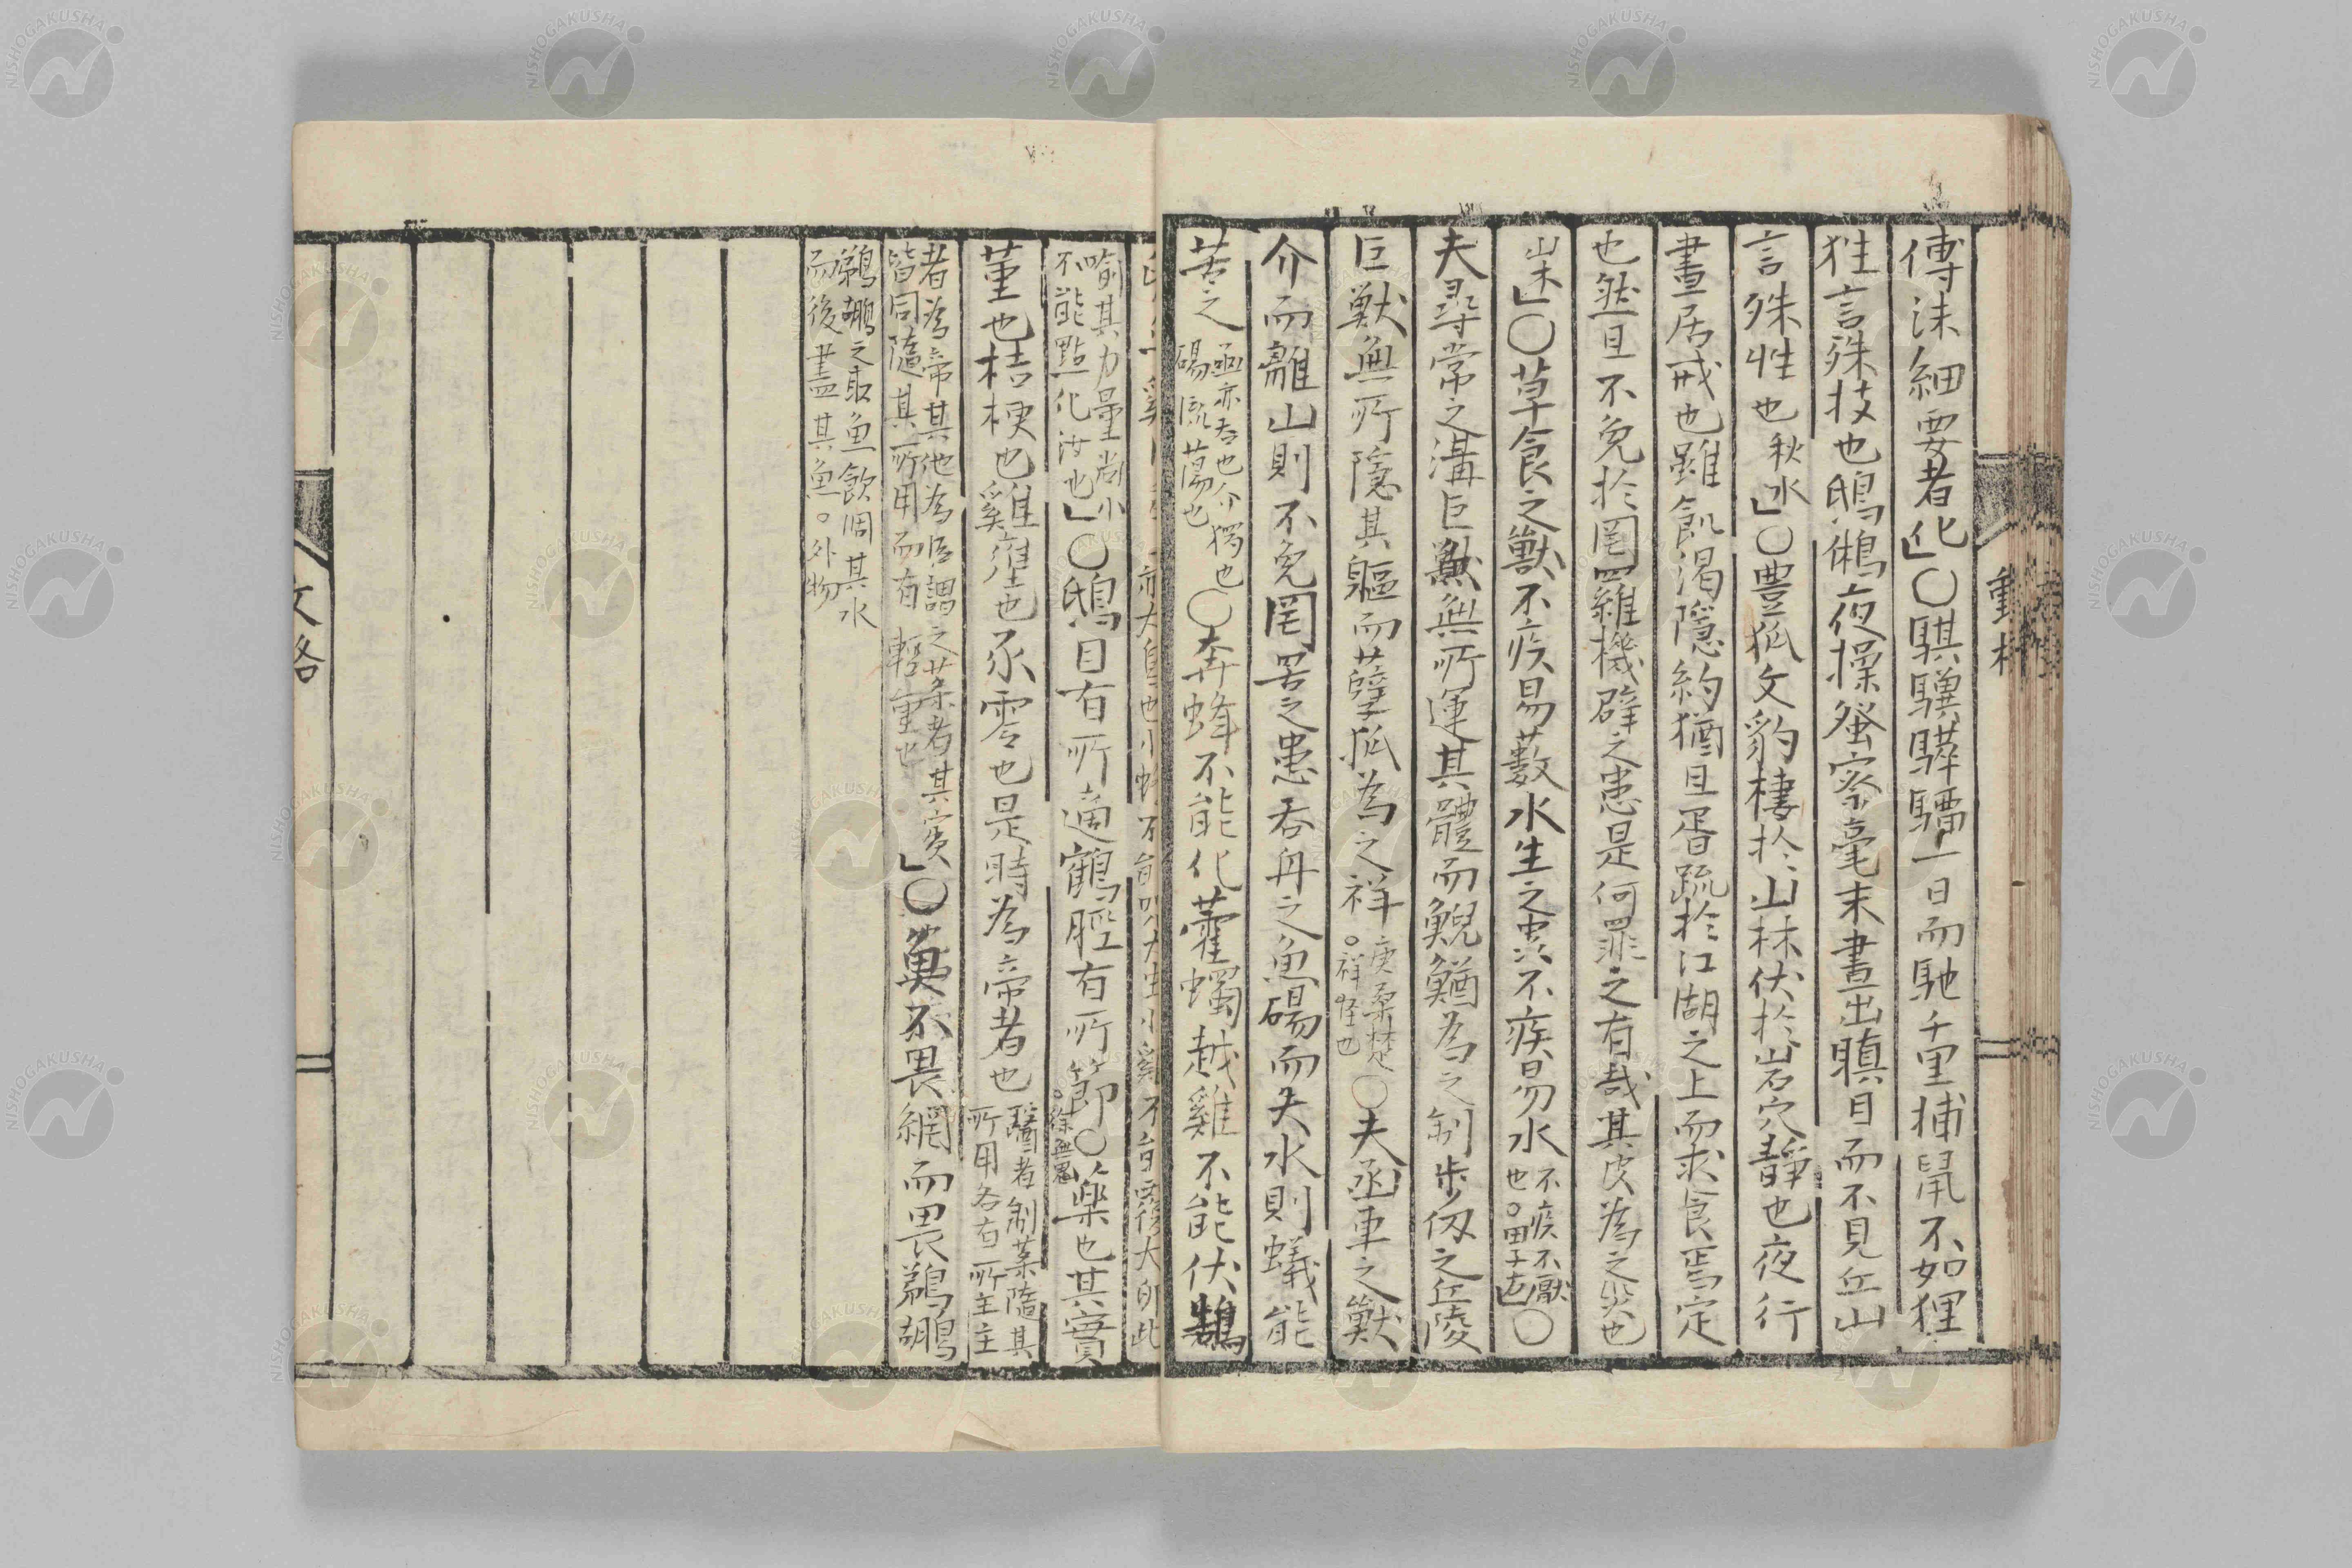 傅沫細要者化」〇騏驥驊騮一日而馳千里捕鼠不如狸
狌言殊技也鴟鵂夜撮蚤察毫末晝出瞋目而不見丘山
言殊性也秋水」〇豊狐文豹棲於山林伏於岩穴靜也夜行
晝居戒也雖飢渴隱約猶且胥疏於江湖之上而求食焉定
也然且不免於罔羅機辟之患是何罪之有哉其皮為之災也
山木」〇草食之獸不疾易藪水生之虫不疾易水不疾不厭也。田子方」〇
夫尋常之溝巨獸無所運其體而鯢鰌為之制步仭之丘陵
巨獸無所隱其軀而孽狐為之祥庚桑楚。祥怪也〇夫函車之獸
介而離山則不免罔罟之患吞舟之魚碭而失水則蟻能
苦之函亦大也介獨也碭流蕩也〇奔蜂不能化藿蠋越雞不能伏鵠
喻其力量尚小不能點化汝也」〇鴟目有所適鶴脛有所節。徐無鬼〇藥也其實
菫也桔梗也雞廱也豕零也是時為帝者也醫者制藥隨其所用各有所主主
者為帝其他為臣謂之藥者其實皆同隨其所用而有輕重也」〇魚不畏網而畏鵜鶘
鵜鶘之取魚飲涸其水而後盡其魚。外物
文略